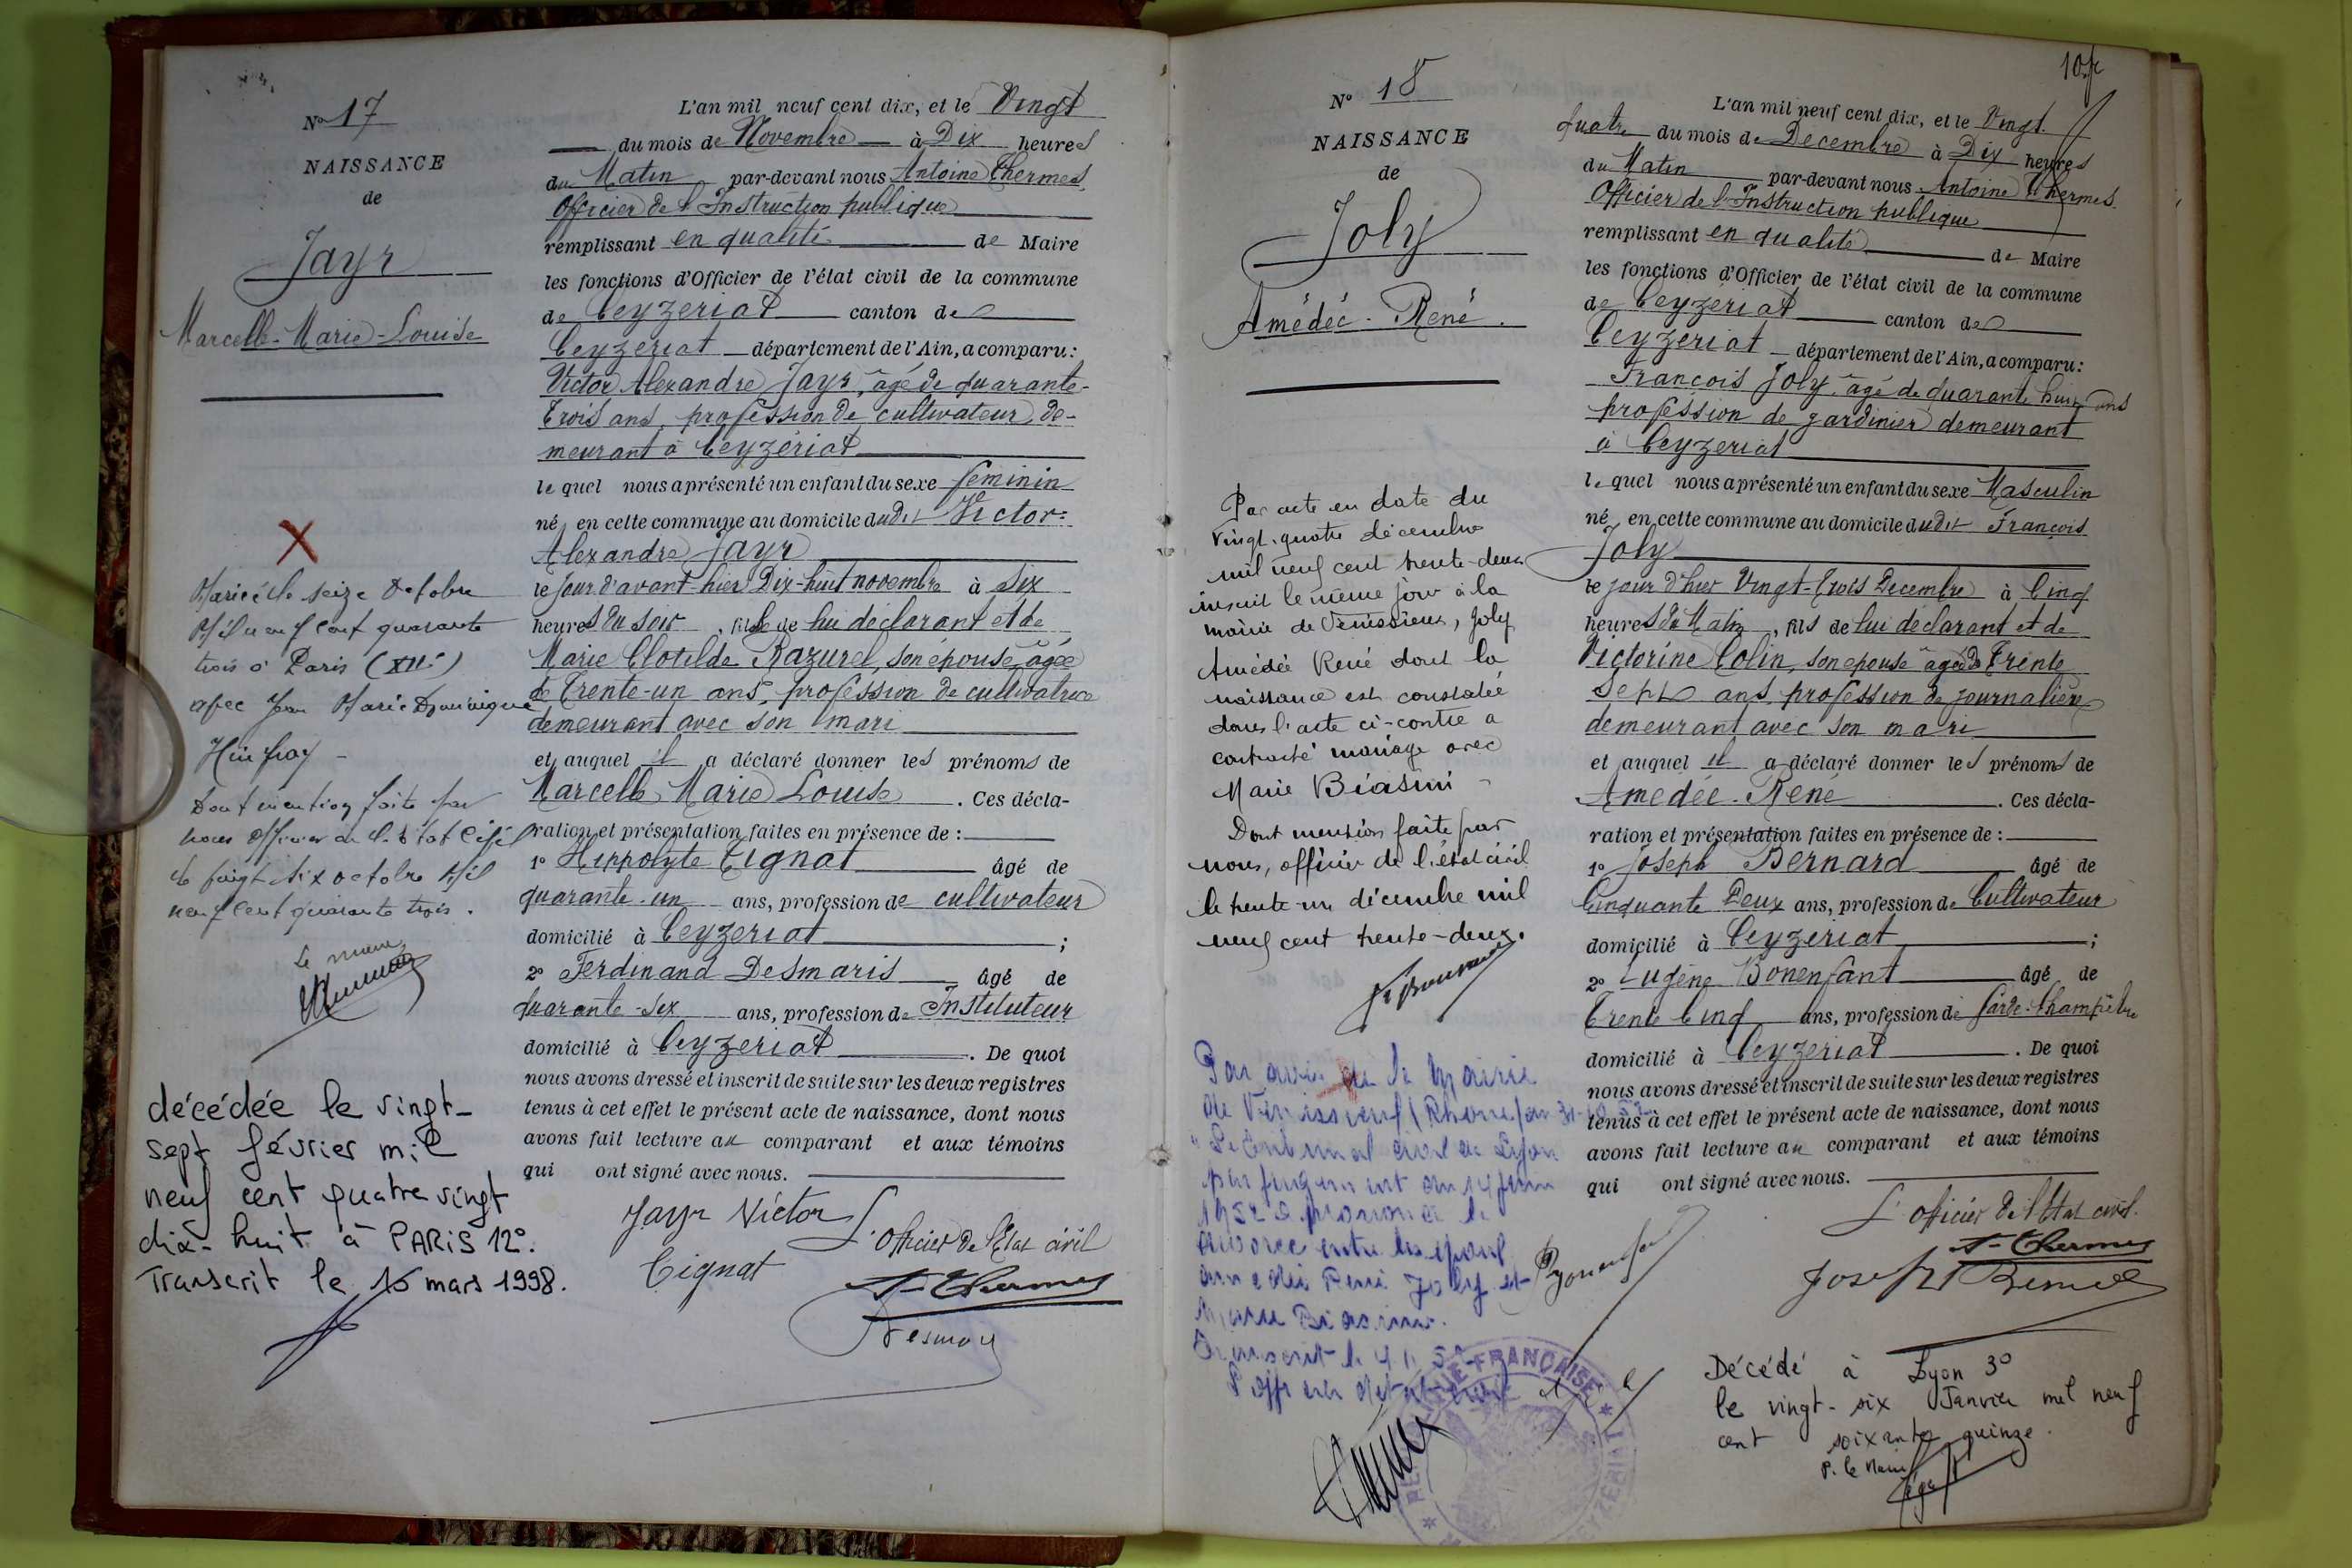 N° 17
NAISSANCE
de
Jayr
Marcelle-Marie-Louise
Mariée le seize Octobre
Mil neuf cent quarante
trois à Paris (XIIe)
avec Jean Marie Dominique
Dont mention faite par
nous officier de l'Etat Civil
le vingt six octobre Mil
neuf cent quarante trois.
Le maire
décédée le vingt-
sept février mil
neuf cent quatre vingt
dix-huit à PARIS 12°.
Transcrit le 16 mars 1998.
L'an mil neuf cent dix, et le Vingt
du mois de Novembre à Dix heures
du Matin par-devant nous Antoine Thermes,
Officier de l'Instruction publique
remplissant en qualité de Maire
les fonctions d'Officier de l'état civil de la commune
de Ceyzeriat canton de
Ceyzeriat département de l'Ain, a comparu :
Victor Alexandre Jayr, âgé de quarante-
trois ans, profession de cultivateur, de-
meurant à Ceyzériat
lequel nous a présenté un enfant du sexe féminin
né, en cette commune au domicile dudit Victor-
Alexandre Jayr
le jour d'avant-hier Dix-huit novembre à Six
heures du soir, fille de lui déclarant et de
Marie Clotilde Razurel, son épouse, âgée
de Trente-un ans, profession de cultivatrice
demeurant avec son mari
et auquel il a déclaré donner les prénoms de
Marcelle Marie Louise . Ces décla-
ration et présentation faites en présence de :
1° Hippolyte Tignat âgé de
quarante-un ans, profession de cultivateur
domicilié à Ceyzeriat ;
2° Ferdinand Desmaris âgé de
quarante-six ans, profession de Instituteur
domicilié à Ceyzeriat . De quoi
nous avons dressé et inscrit de suite sur les deux registres
tenus à cet effet le présent acte de naissance, dont nous
avons fait lecture au comparant et aux témoins
qui ont signé avec nous.
Jayr Victor
L'officier de l'Etat civil
Tignat
A. Thermes
N° 18
NAISSANCE
de
Joly
Amédée-René.
Par acte en date du
vingt-quatre décembre
mil neuf cent trente-deux
inscrit le même jour à la
mairie de Vénissieux, Joly
Amédée René dont la
naissance est constatée
dans l'acte ci-contre a
contracté mariage avec
Marie Biasini
Dont mention faite par
nous, officier de l'état civil
le trente-un décembre mil
neuf cent trente-deux.
Par avis de la Mairie
de Vénissieux (Rhône) du
"Le Tribunal civil de Lyon
par jugement du 14 juin
1952 a prononcé le
divorce entre les époux
Amédée René Joly et
Marie Biasini.
Transcrit le
L'officier d'état-civil
L'an mil neuf cent dix, et le Vingt-
quatre du mois de Decembre à Dix heures
du Matin par-devant nous Antoine Thermes
Officier de l'Instruction publique
remplissant en qualité de Maire
les fonctions d'Officier de l'état civil de la commune
de Ceyzériat canton de
Ceyzeriat département de l'Ain, a comparu :
François Joly, âgé de quarante huit ans
profession de gardinier demeurant
à Ceyzeriat
lequel nous a présenté un enfant du sexe Masculin
né, en cette commune au domicile dudit François
Joly
le jour d'hier Vingt-trois Decembre à Cinq
heures du Matin, fils de lui déclarant et de
Victorine Colin, son épouse âgée de Trente
Sept ans, profession de journalière
demeurant avec son mari
et auquel il a déclaré donner les prénoms de
Amedée-René . Ces décla-
ration et présentation faites en présence de :
1° Joseph Bernard âgé de
Cinquante Deux ans, profession de Cultivateur
domicilié à Ceyzeriat ;
2° Eugène Bonenfant âgé de
Trente Cinq ans, profession de Garde-Champêtre
domicilié à Ceyzeriat . De quoi
nous avons dressé et inscrit de suite sur les deux registres
tenus à cet effet le présent acte de naissance, dont nous
avons fait lecture au comparant et aux témoins
qui ont signé avec nous.
L'officier de l'Etat civil.
A. Thermes
Bonenfant
Joseph Bernard
Décédé à Lyon 3°
le vingt-six Janvier mil neuf
cent soixante quinze.
P. le Maire
FRANÇAISE